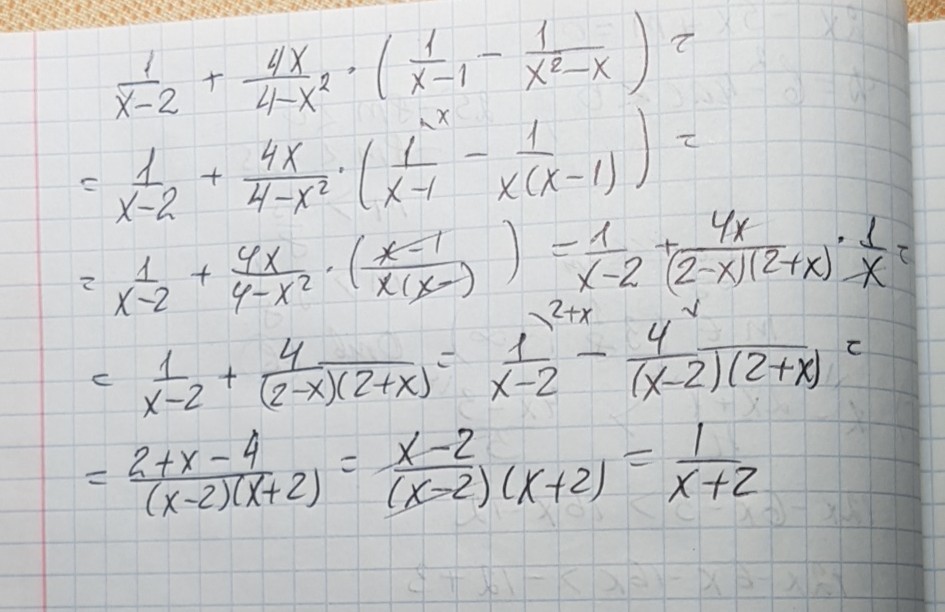 1/(x-2) + 4x/(4-x²) · (1/(x-1) - 1/(x²-x)) =
= 1/(x-2) + 4x/(4-x²) · (1/(x-1) \x - 1/(x(x-1))) =
= 1/(x-2) + 4x/(4-x²) · ((x-1)/(x(x-))) = 1/(x-2) + 4x/((2-x)(2+x)) · 1/x =
= 1/(x-2) + 4/((2-x)(2+x)) = 1/(x-2) \2+x - 4/((x-2)(2+x)) =
= (2+x-4)/((x-2)(x+2)) = (x-2)/((x-2)(x+2)) = 1/(x+2)